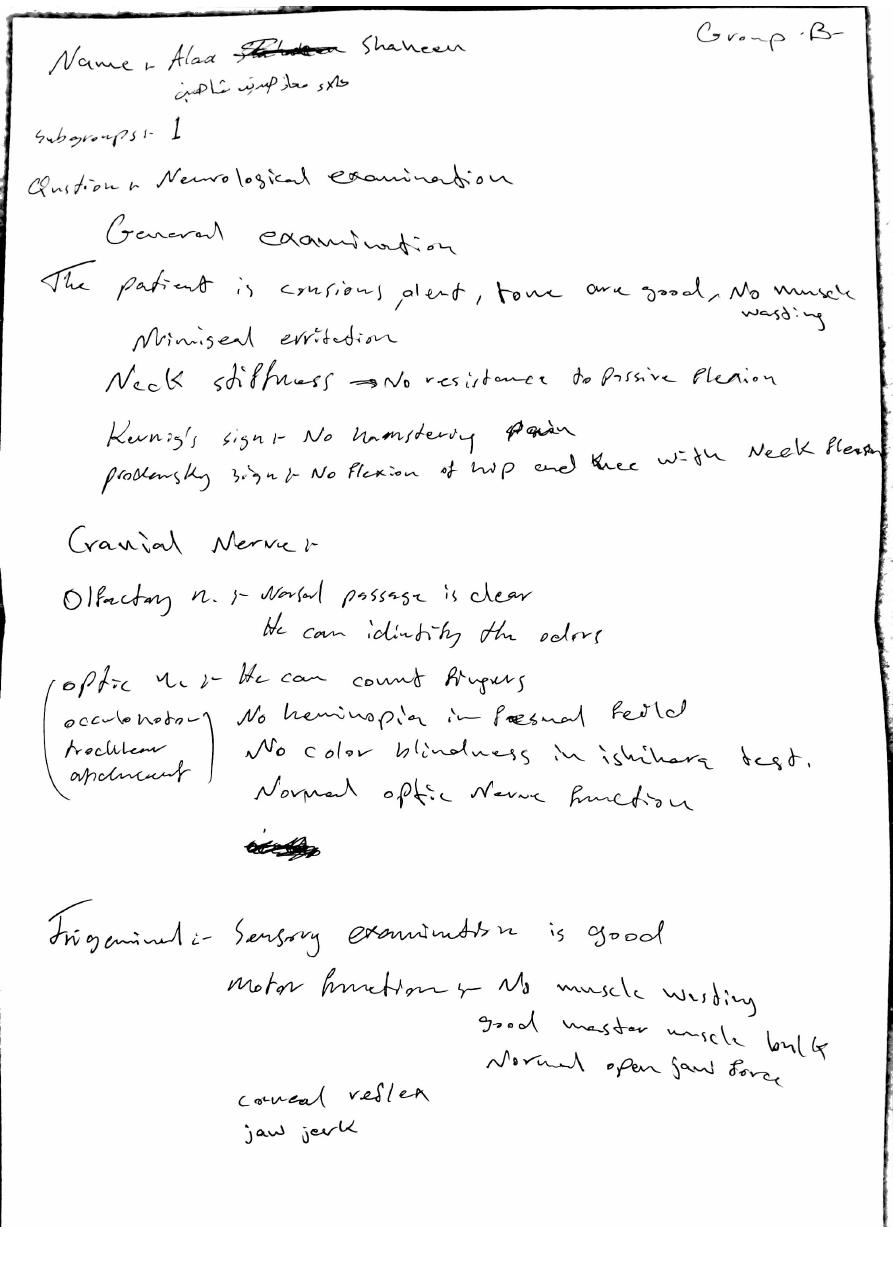 Group -B-
Name :- Alaa Shaheen
شاهين
Subgroups :- 1
Qustion :- Neurological examination
General examination
The patient is consious, alert, tone are good, No muscle
wasting
Miniseal erritation
Neck stiffness → No resistance to passive flexion
Kernig's sign :- No hamstering pain
prodensky sign :- No flexion of hip and knee with Neck flexion
Cranial Nerve :-
Olfactory n. :- Nasal passage is clear
He can idintity the odors
optic n. :- He can count fingers
occulomotor No heminopia in fild
trochlear No color blindness in ishihara test.
abducent
Normal optic Nerve function
Trigeminal :- Sensory examination is good
motor function :- No muscle wasting
good master muscle bulk
Normal open jaw force
corneal reflex
jaw jerk